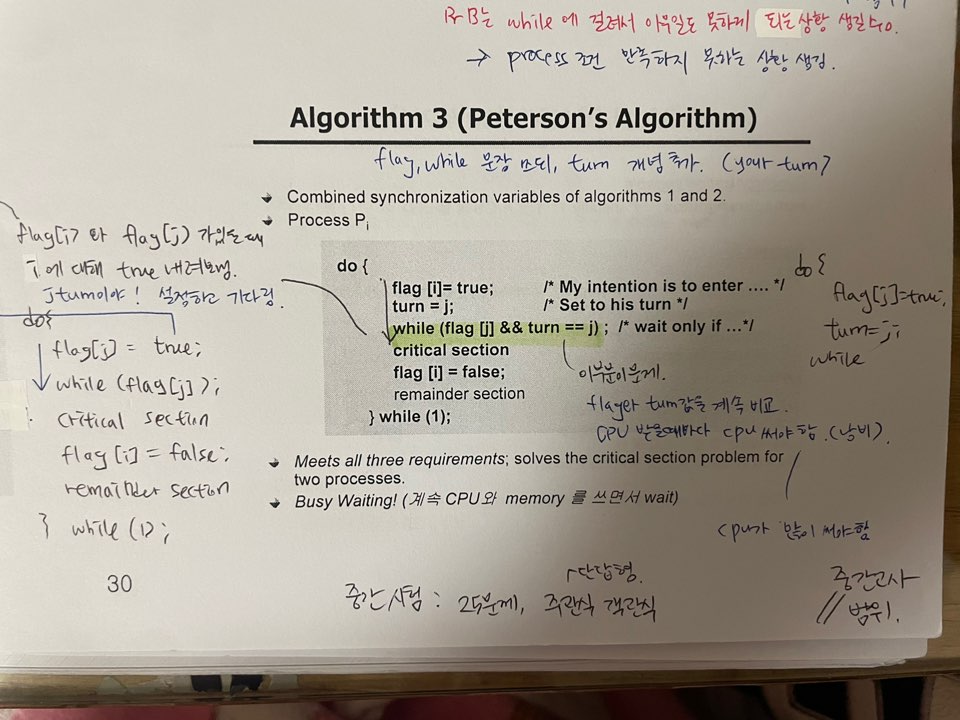 while에 걸려서 아무일도 못하게 되는 상황 생길수o.
→ process 조건 만족하지 못하는 상황 생김.
Algorithm 3 (Peterson's Algorithm)
flag, while 문장 쓰되, turn 개념 추가. (your turn)
Combined synchronization variables of algorithms 1 and 2.
Process Pi
flag[i]와 flag[j] 가있을때
i에 대해 true 내려보냄.
j turn이야! 설정하고 기다림.
do {
flag [i]= true; /* My intention is to enter .... */
turn = j; /* Set to his turn */
while (flag [j] && turn == j) ; /* wait only if ...*/
critical section
flag [i] = false;
remainder section
} while (1);
do{
flag[j]=true;
turn=j;
while
이부분이문제.
flag와 turn값을 계속 비교.
CPU 받을때마다 CPU써야함.(낭비).
cpu가 많이 써야함
do{
flag[j] = true;
while (flag[j]);
critical section
flag [i] = false;
remainder section
} while (1);
Meets all three requirements; solves the critical section problem for
two processes.
Busy Waiting! (계속 CPU와 memory 를 쓰면서 wait)
30
중간시험 : 25문제, 주관식 객관식
단답형.
중간고사
// 범위.